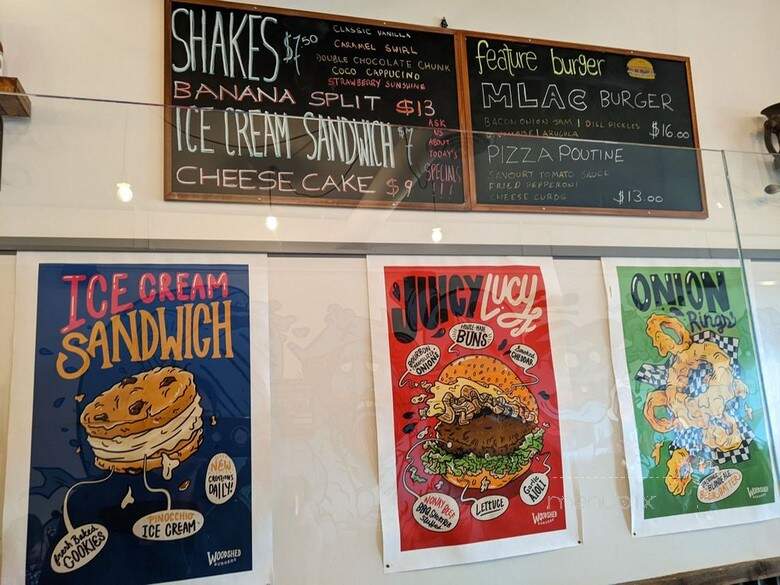 SHAKES $7.50
CLASSIC VANILLA
CARAMEL SWIRL
DOUBLE CHOCOLATE CHUNK
COCO CAPPUCINO
STRAWBERRY SUNSHINE
BANANA SPLIT $13
ICE CREAM SANDWICH $7
CHEESE CAKE $9
ASK
US
ABOUT
TODAY'S
SPECIALS
!!!
feature burger
MLAC BURGER
BACON ONION JAM | DILL PICKLES
| ARUGULA
$16.00
PIZZA POUTINE
SAVOURY TOMATO SAUCE
FRIED PEPPERONI
CHEESE CURDS
$13.00
ICE CREAM
SANDWICH
NEW
CREATIONS
DAILY!
Fresh Baked
COOKIES
PINOCCHIO
ICE CREAM
WOODSHED
BURGERS
JUICY LUCY
HOUSE MADE
BUNS
BOURBON
ONIONS
Smoked
CHEDDAR
WONKY BEEF
LETTUCE
Garlic
AIOLI
WOODSHED
BURGERS
ONION
Rings
BLONDE ALE
BEER BATTER
WOODSHED